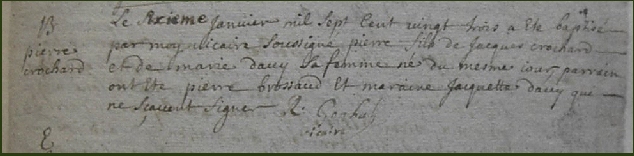 B
pierre
crochard
Le Sixieme Janvier mil Sept Cent vingt trois a Ete baptisé
par moy vicaire Soussigné pierre fils de Jacques crochard
et de marie dauy Sa femme né du mesme iour, parrain
ont Ete pierre brossaud Et maraine Jacquette dauy qui
ne Scauent Signer
vicaire